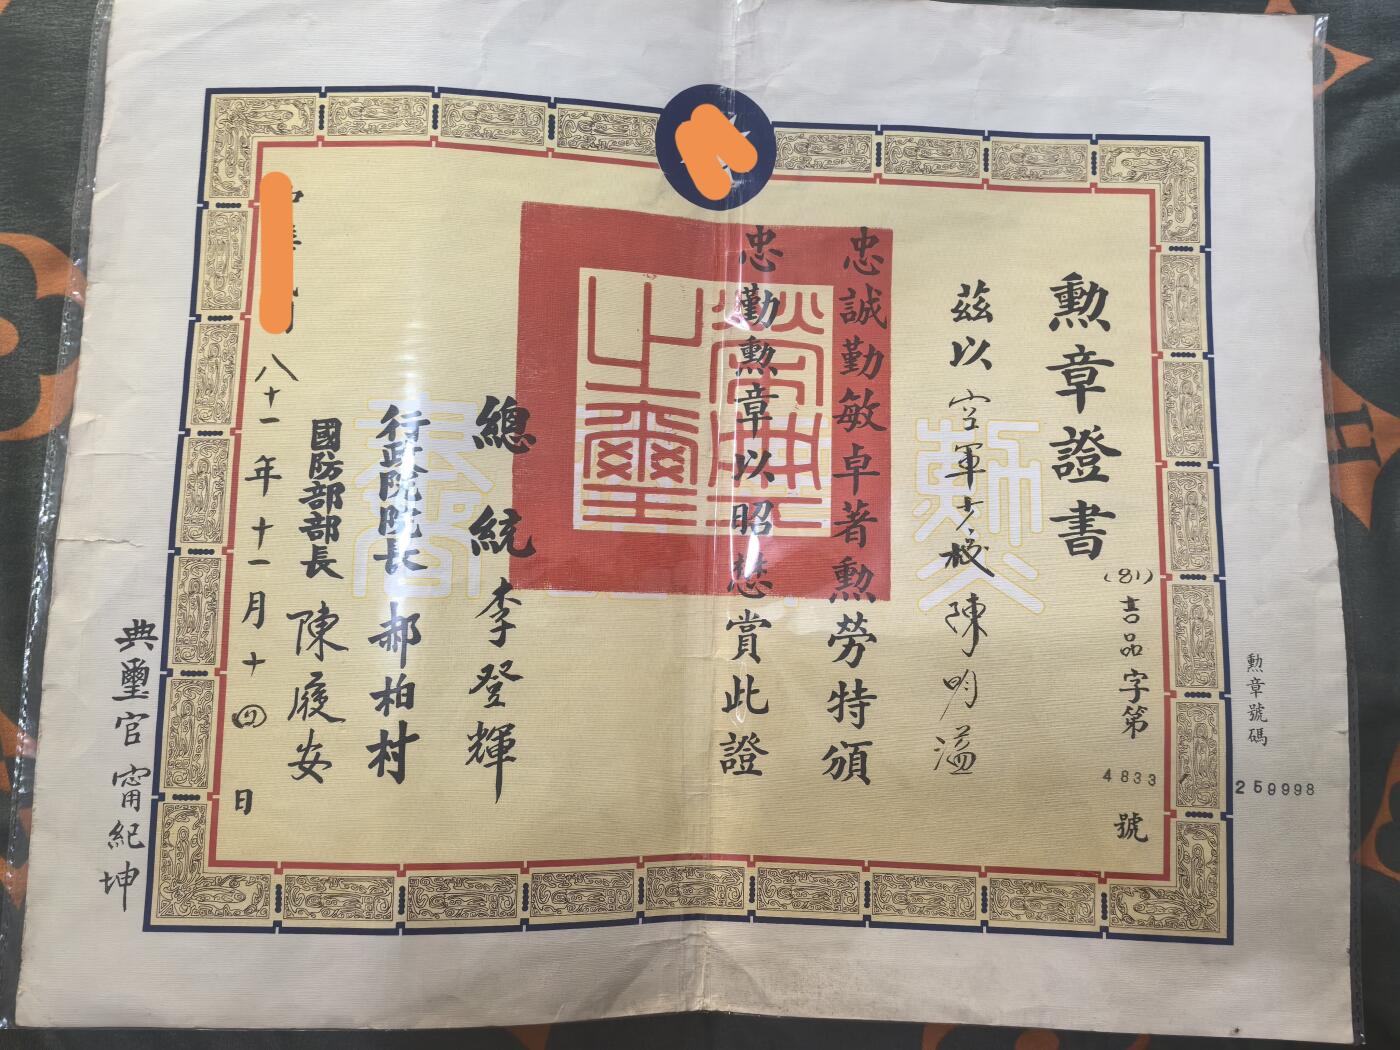 勳章號碼
259998
勳章證書
(81)吉品字第
4833
號
茲以空軍少校陳明溢
忠誠勤敏卓著勳勞特頒
忠勤勳章以昭懋賞此證
榮典之璽
總統李登輝
行政院院長郝柏村
國防部部長陳履安
八十一年十一月十四日
典璽官甯紀坤